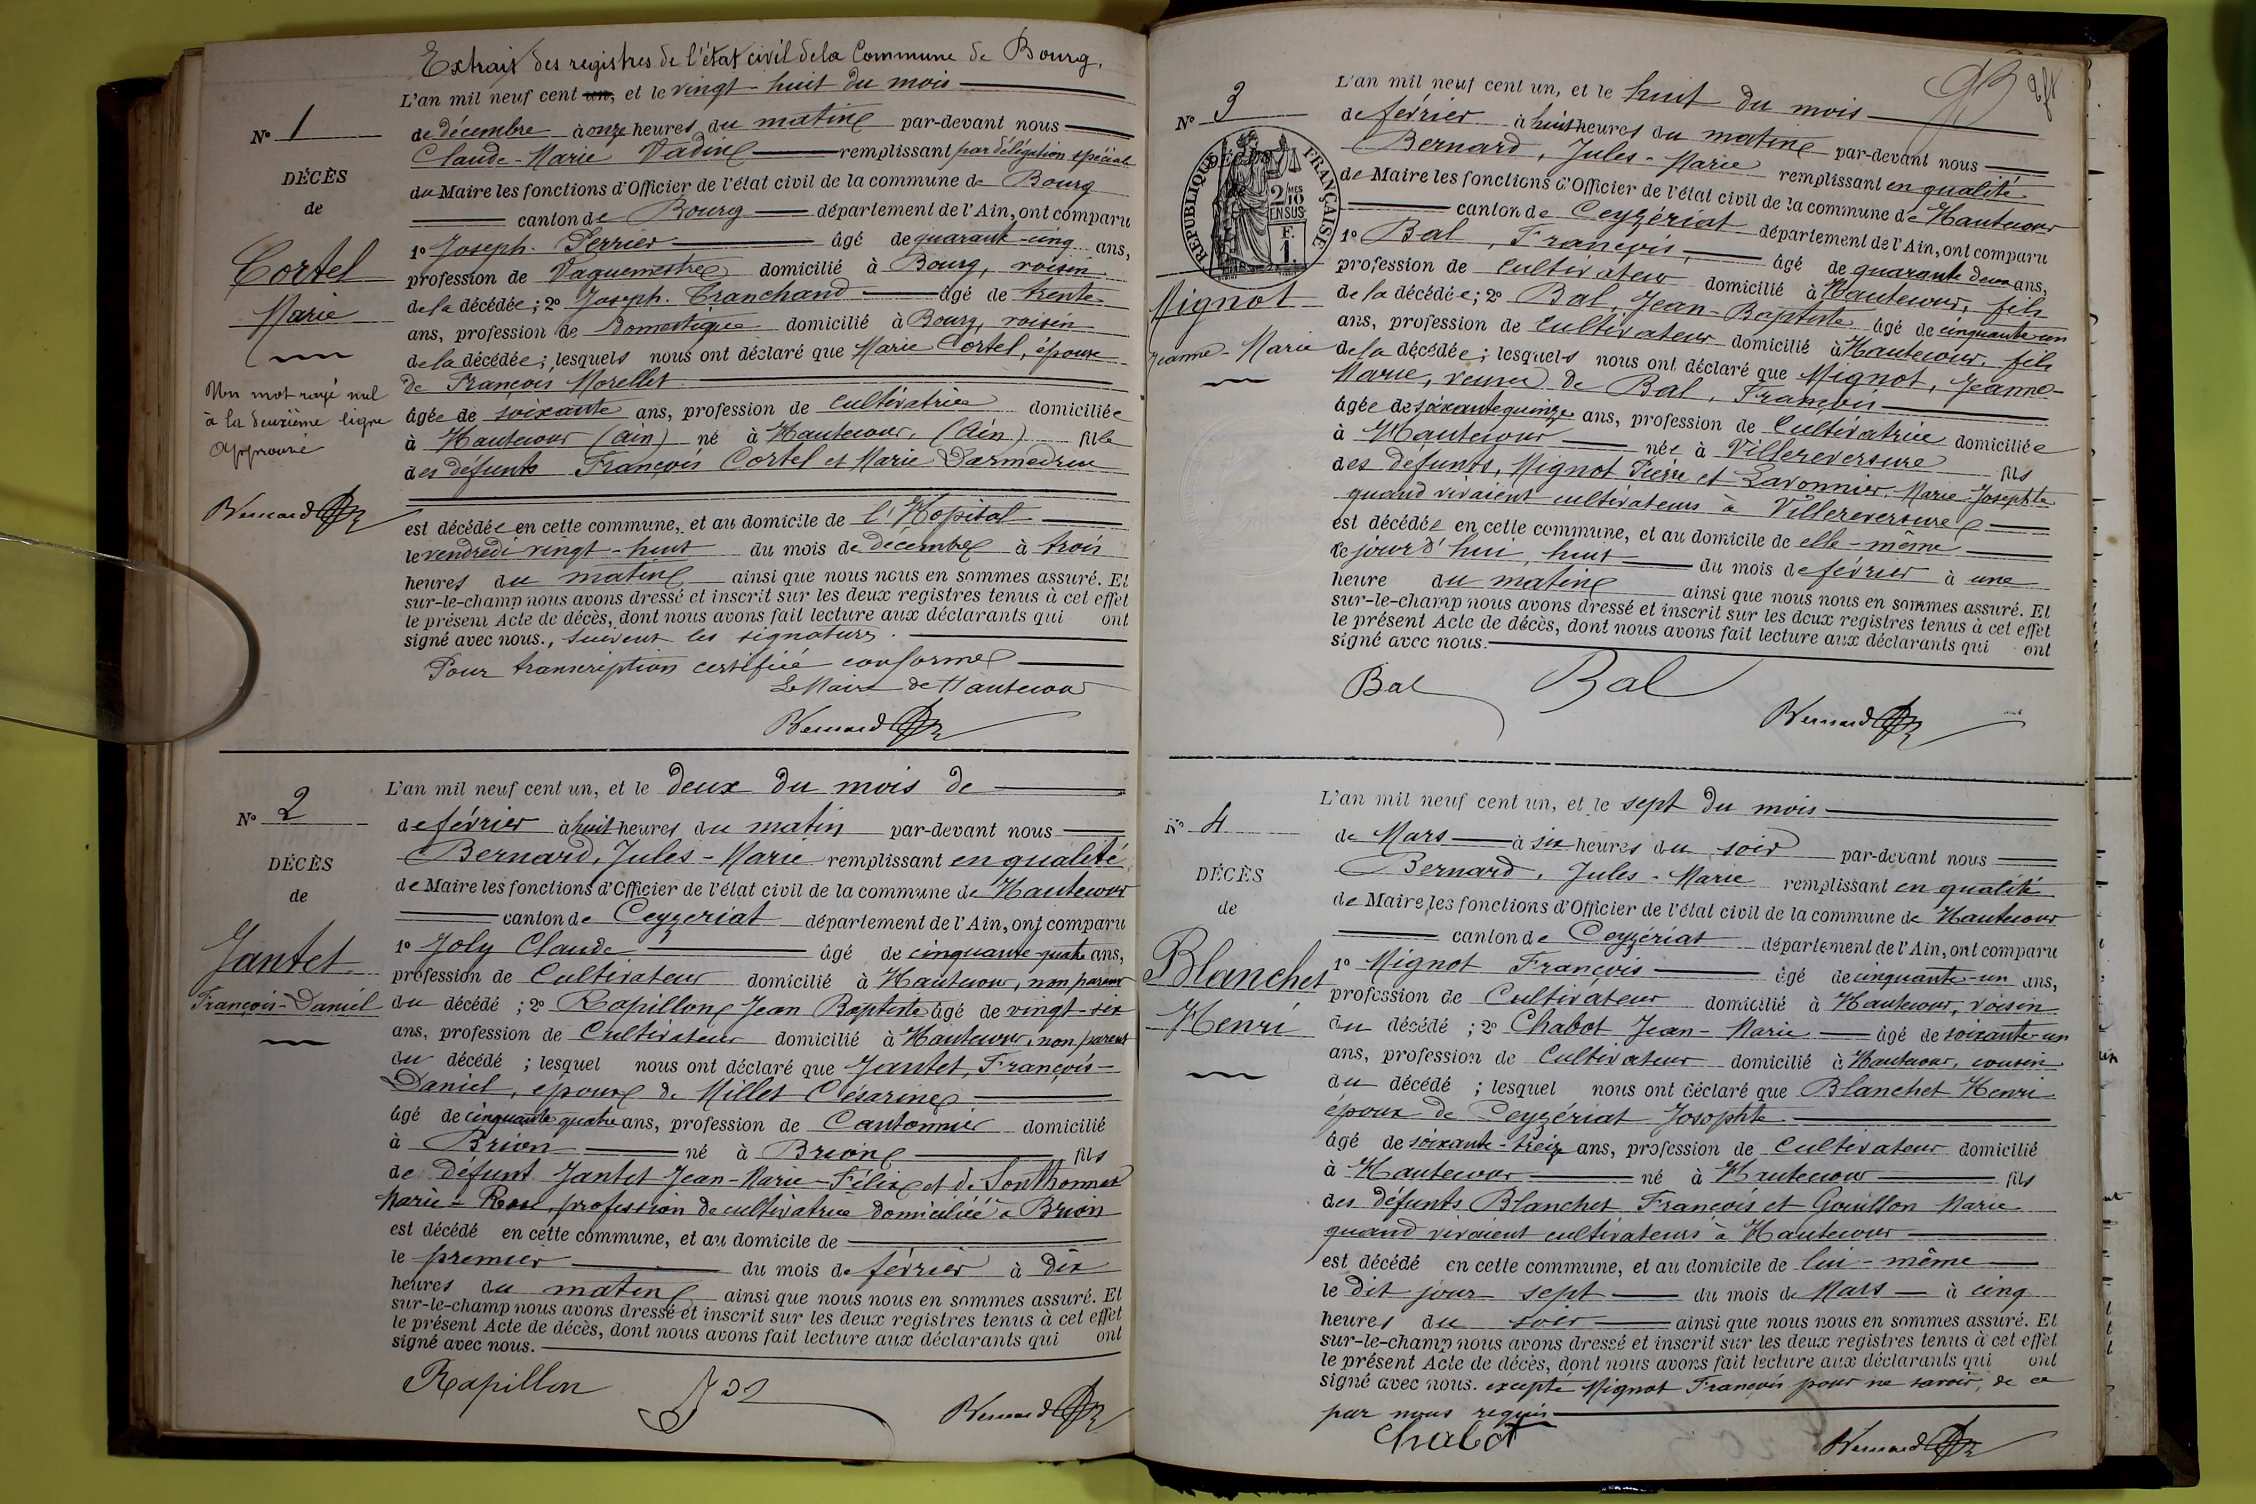 Extrait des registres de l'état civil de la Commune de Bourg.
L'an mil neuf cent un, et le vingt-huit du mois
N° 1
de décembre à onze heures du matin par-devant nous
Claude-Marie Vadin remplissant par délégation spéciale
DÉCÈS
du Maire les fonctions d'Officier de l'état civil de la commune de Bourg
de
canton de Bourg département de l'Ain, ont comparu
1° Joseph Perrier âgé de quarant-cinq ans,
Cortel
profession de Vaguemestre domicilié à Bourg, voisin
de la décédée; 2° Joseph Tranchand âgé de trente
Marie
ans, profession de Domestique domicilié à Bourg, voisin
de la décédée; lesquels nous ont déclaré que Marie Cortel, épouse
de François Morellet
Un mot rayé nul
à la deuxième ligne
Approuvé
Bernard
âgée de soixante ans, profession de cultivatrice domiciliée
à Hautecour (Ain) né à Hautecour, (Ain) fille
des défunts François Cortel et Marie
est décédée en cette commune, et au domicile de l'Hopital
le vendredi vingt-huit du mois de décembre à trois
heures du matin ainsi que nous nous en sommes assuré. Et
sur-le-champ nous avons dressé et inscrit sur les deux registres tenus à cet effet
le présent Acte de décès, dont nous avons fait lecture aux déclarants qui ont
signé avec nous., suivent les signatures.
Pour transcription certifiée conforme
Le Maire de Hautecour
Bernard
L'an mil neuf cent un, et le deux du mois de
N° 2
de février à huit heures du matin par-devant nous
Bernard, Jules-Marie remplissant en qualité
DÉCÈS
de Maire les fonctions d'Officier de l'état civil de la commune de Hautecour
de
canton de Ceyzeriat département de l'Ain, ont comparu
1° Joly Claude âgé de cinquante quatre ans,
Jantet
profession de Cultivateur domicilié à Hautecour, non parent
François-Daniel
du décédé; 2° Rapillon Jean Baptiste âgé de vingt-six
ans, profession de Cultivateur domicilié à Hautecour, non parent
du décédé; lesquel nous ont déclaré que Jantet, François-
Daniel, époux de Millet Césarine
âgé de cinquante quatre ans, profession de Cantonnier domicilié
à Brion né à Brion fils
de défunt Jantet Jean-Marie-Félix et de Sonthonnax
Marie-Rose, profession de cultivatrice domiciliée à Brion
est décédé en cette commune, et au domicile de
le premier du mois de février à dix
heures du matin ainsi que nous nous en sommes assuré. Et
sur-le-champ nous avons dressé et inscrit sur les deux registres tenus à cet effet
le présent Acte de décès, dont nous avons fait lecture aux déclarants qui ont
signé avec nous.
Rapillon Bernard
L'an mil neuf cent un, et le huit du mois
N° 3
de février à huit heures du matin par-devant nous
Bernard, Jules-Marie remplissant en qualité
RÉPUBLIQUE FRANÇAISE
2/10 MES
EN SUS
F.
1.
de Maire les fonctions d'Officier de l'état civil de la commune de Hautecour
canton de Ceyzériat département de l'Ain, ont comparu
1° Bal, François, âgé de quarante deux ans,
profession de cultivateur domicilié à Hautecour, fils
Mignot
de la décédée; 2° Bal, Jean-Baptiste âgé de cinquante-un
ans, profession de cultivateur domicilié à Hautecour, fils
Jeanne-Marie
de la décédée; lesquels nous ont déclaré que Mignot, Jeanne-
Marie, veuve de Bal, François
âgée de soixante quinze ans, profession de Cultivatrice domiciliée
à Hautecour née à Villereversure fils
des défunts, Mignot Pierre et Lavonnier, Marie-Josephte
quand vivaient cultivateurs à Villereversure
est décédée en cette commune, et au domicile de elle-même
ce jour d'hui, huit du mois de février à une
heure du matin ainsi que nous nous en sommes assuré. Et
sur-le-champ nous avons dressé et inscrit sur les deux registres tenus à cet effet
le présent Acte de décès, dont nous avons fait lecture aux déclarants qui ont
signé avec nous.
Bal Bal Bernard
L'an mil neuf cent un, et le sept du mois
N° 4
de Mars à six heures du soir par-devant nous
Bernard, Jules-Marie remplissant en qualité
DÉCÈS
de Maire les fonctions d'Officier de l'état civil de la commune de Hautecour
de
canton de Ceyzériat département de l'Ain, ont comparu
Blanchet
1° Mignot François âgé de cinquante-un ans,
profession de Cultivateur domicilié à Hautecour, voisin
Henri
du décédé; 2° Chabot Jean-Marie âgé de soixante-un
ans, profession de Cultivateur domicilié à Hautecour, cousin
du décédé; lesquel nous ont déclaré que Blanchet Henri
époux de Ceyzériat Josophte
âgé de soixante-treize ans, profession de cultivateur domicilié
à Hautecour né à Hautecour fils
des défunts Blanchet François et Gouillon Marie
quand vivaient cultivateurs à Hautecour
est décédé en cette commune, et au domicile de lui-même
le dit jour sept du mois de Mars à cinq
heures du soir ainsi que nous nous en sommes assuré. Et
sur-le-champ nous avons dressé et inscrit sur les deux registres tenus à cet effet
le présent Acte de décès, dont nous avons fait lecture aux déclarants qui ont
signé avec nous. excepté Mignot François pour ne savoir, de ce
par nous requis
Chabot Bernard